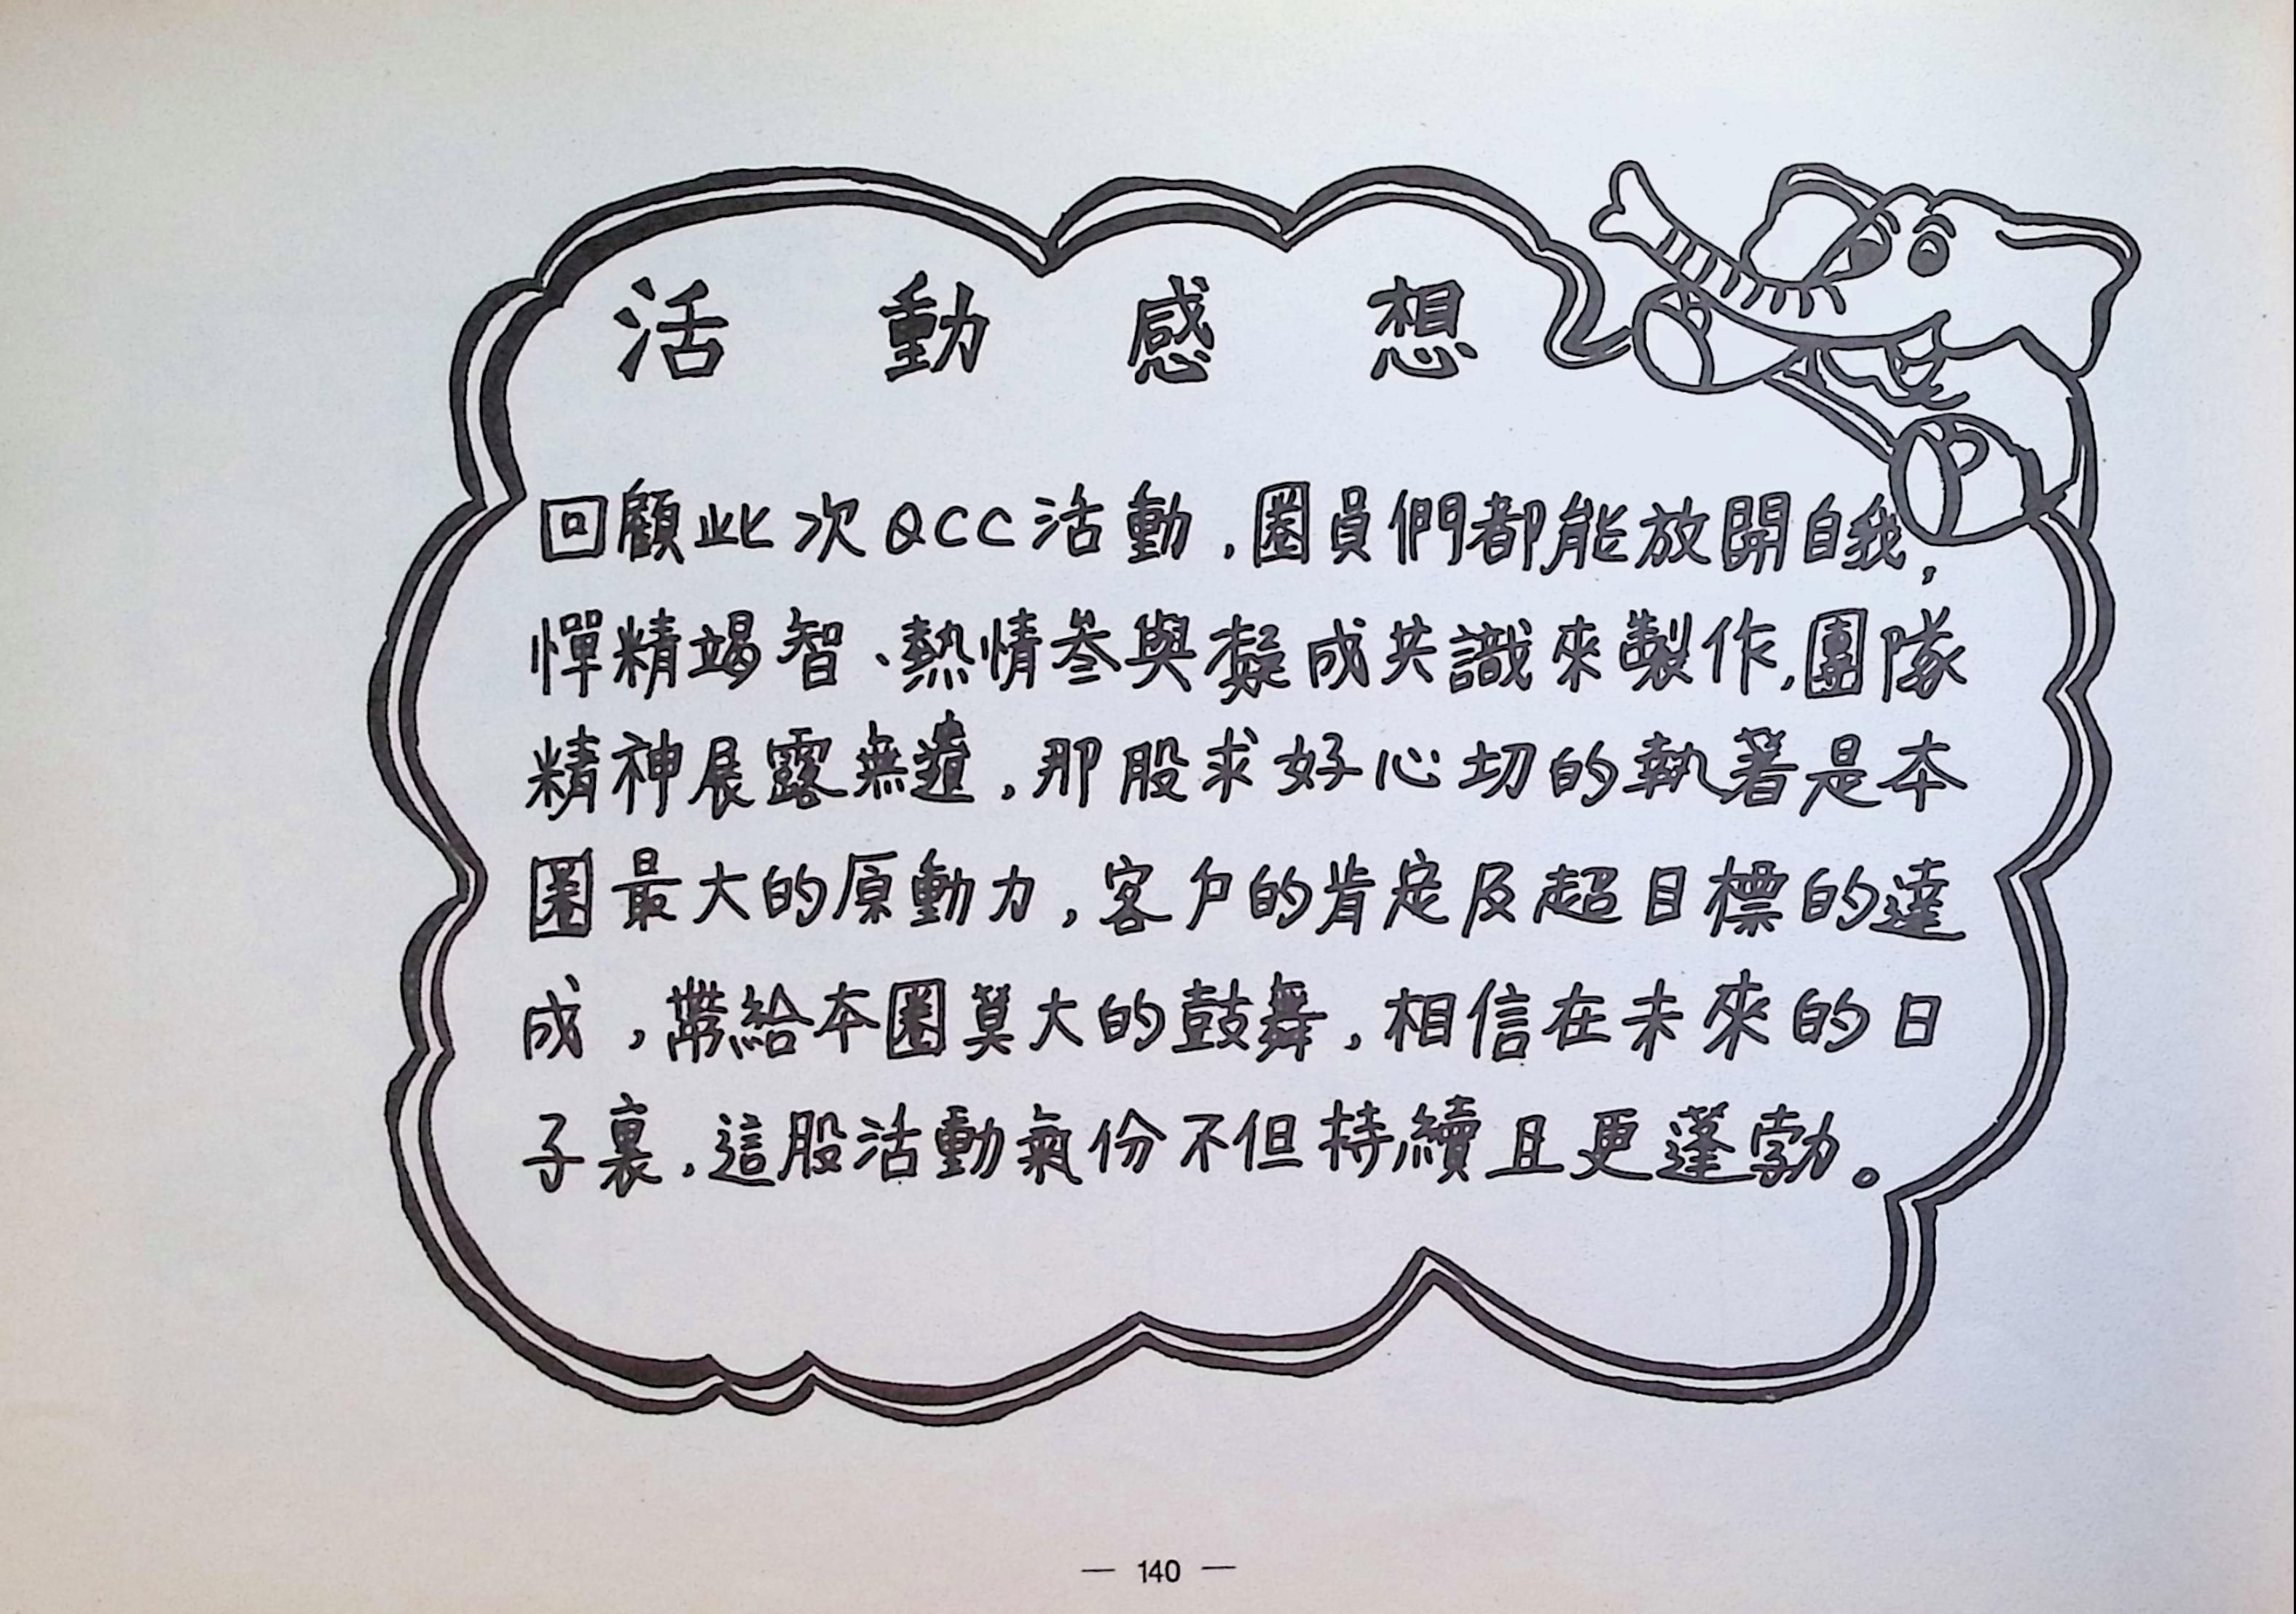 活動感想
回顧此次QCC活動,圈員們都能放開自我,
憚精竭智、熱情參與擬成共識來製作,團隊
精神展露無遺,那股求好心切的執著是本
圈最大的原動力,客戶的肯定及超目標的達
成,帶給本圈莫大的鼓舞,相信在未來的日
子裏,這股活動氣份不但持續且更蓬勃。
— 140 —